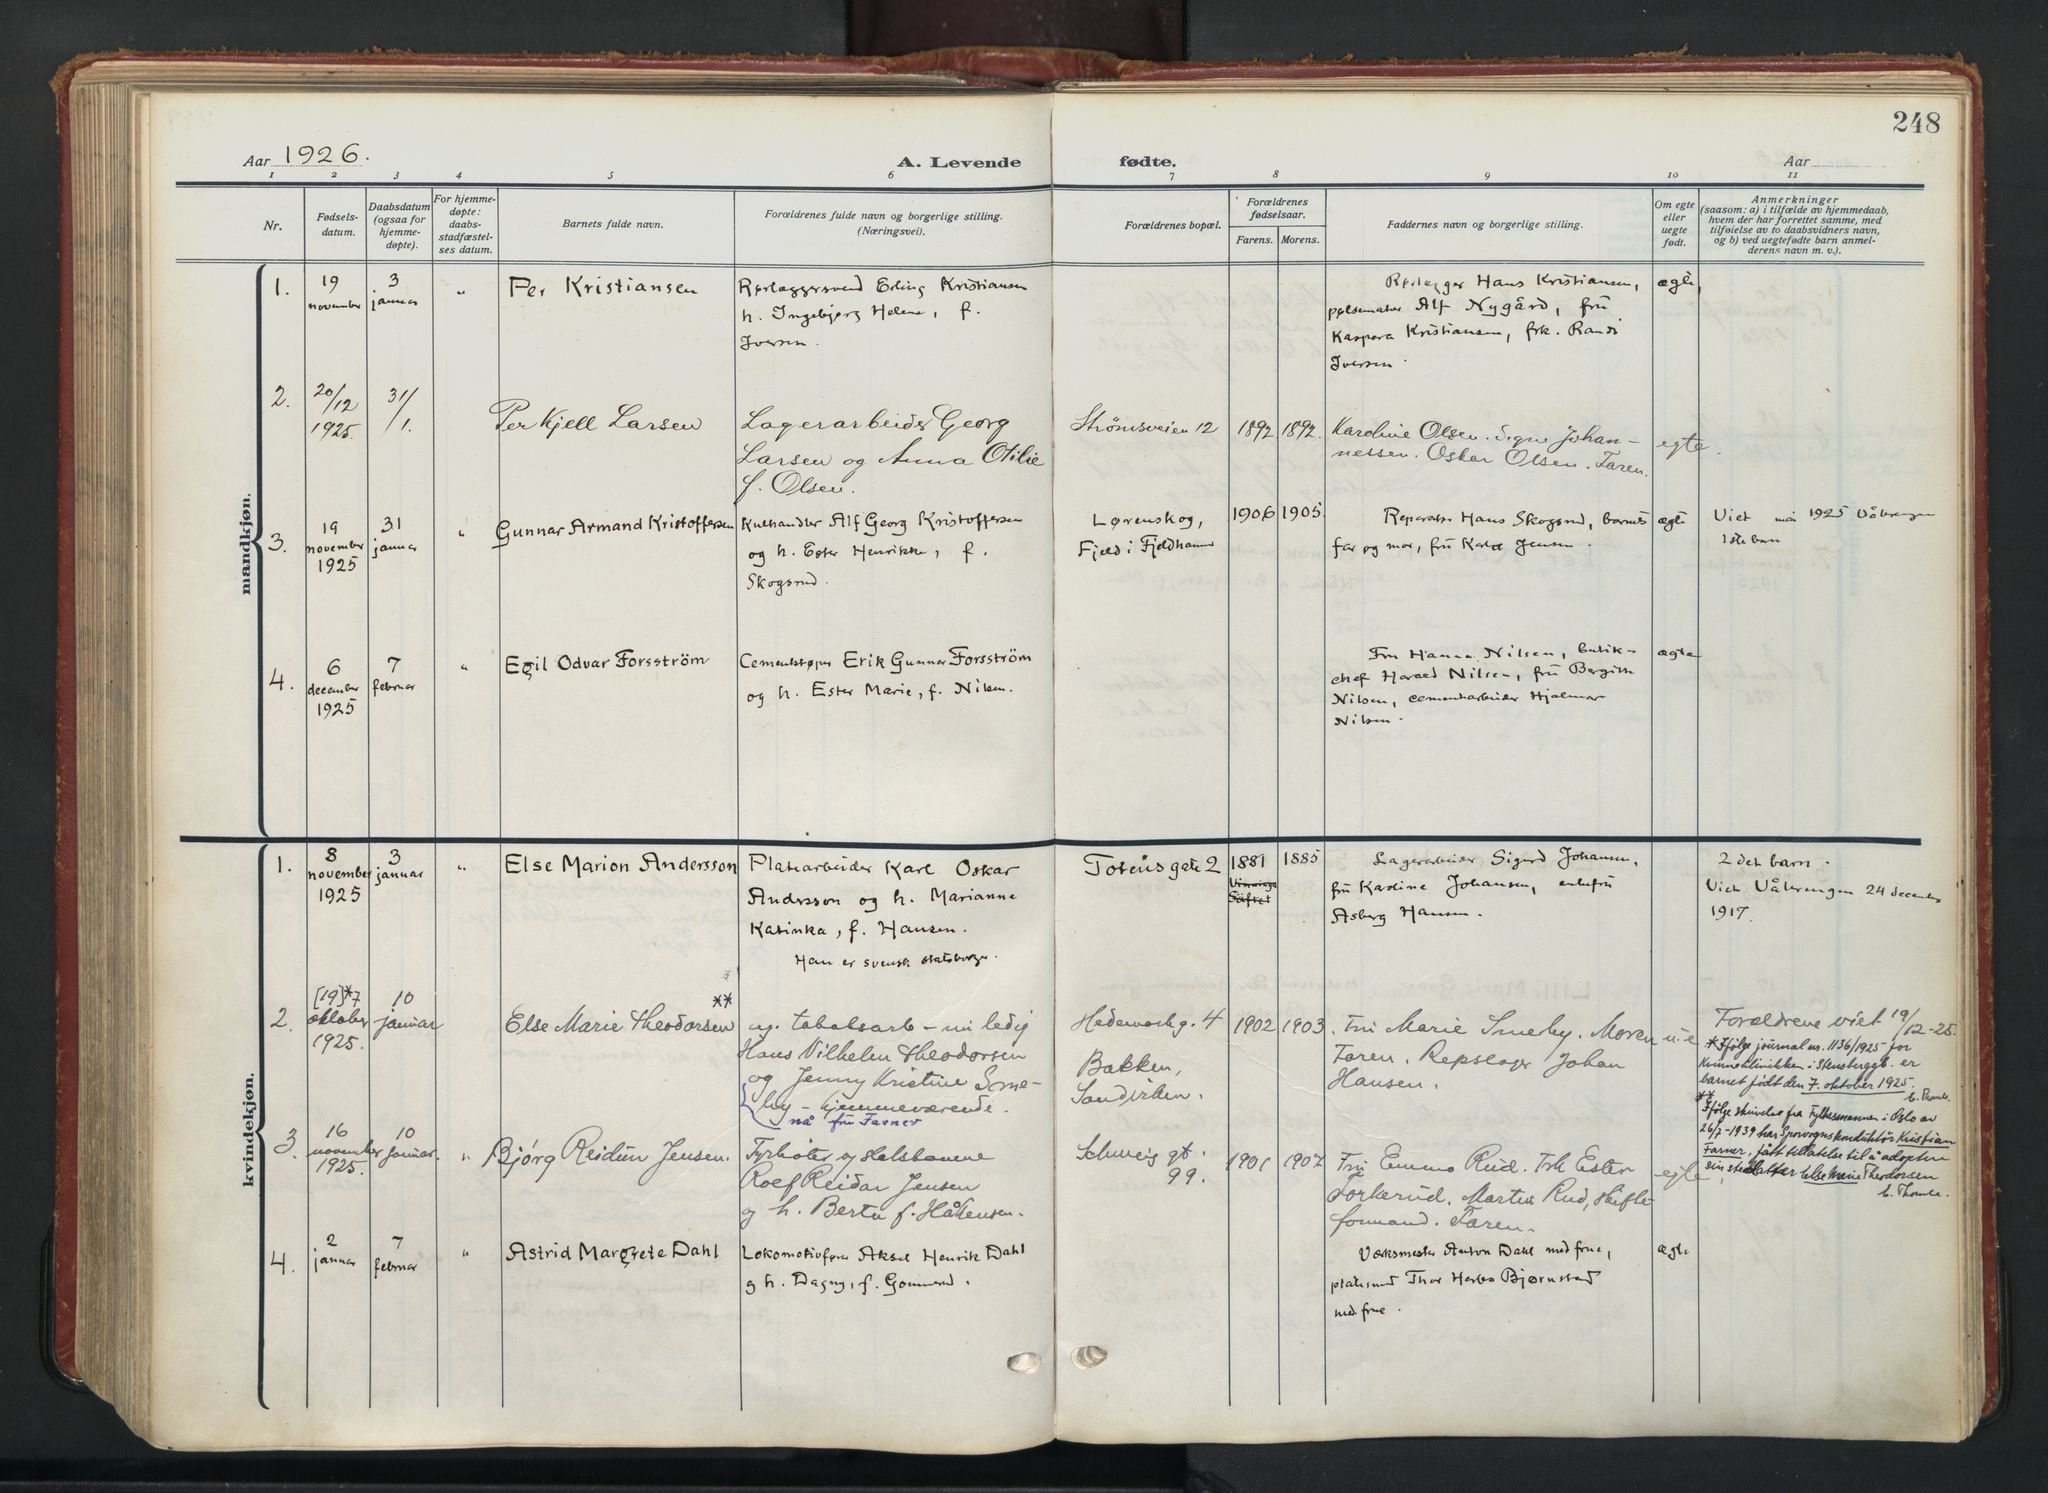 248
Aar 1926.
A. Levende fødte.
Aar
1 2 3 4 5 6 7 8 9 10 11
Nr.
Fødsels-
datum.
Daabsdatum
(ogsaa for
hjemme-
døpte).
For hjemme-
døpte:
daabs-
stadfæstel-
ses datum.
Barnets fulde navn.
Forældrenes fulde navn og borgerlige stilling.
(Næringsvei).
Forældrenes bopæl.
Forældrenes
fødselsaar.
Farens. Morens.
Faddernes navn og borgerlige stilling.
Om egte
eller
uegte
født.
Anmerkninger
(saasom: a) i tilfælde av hjemmedaab,
hvem der har forrettet samme, med
tilføielse av to daabsvidners navn,
og b) ved uegtefødte barn anmel-
derens navn m. v.).
mandkjøn.
1.
19
november
3
januar
"
Per Kristiansen
Rørlæggersvend Erling Kristiansen
h. Ingebjørg Helene, f.
Iversen.
Rørlegger Hans Kristiansen,
pølsemaker Alf Nygård, frú
Kaspara Kristiansen, frk. Randi
Iversen.
ægte,
2.
20/12
1925.
31/1.
Per Kjell Larsen
Lagerarbeider Georg
Larsen og Anna Otilie
f. Olsen.
Strømsveien 12
1892
1892.
Karoline Olsen. Signe Johan-
nessen. Oskar Olsen. Faren.
egte.
3.
19
november
1925
31
januar
"
Gunnar Armand Kristoffersen
Kulhandler Alf Georg Kristoffersen
og h. Ester Henrikke, f.
Skogsrud.
Lørenskog,
Fjeld i Fjeldhamar
1906
1905.
Reparatør Hans Skogsrud, barnets
far og mor, frú Jensen.
ægte
Viet mai 1925 Vålerengen
1ste barn
4.
6
december
1925
7
februar
"
Egil Odvar Forsström
Cementstøper Erik Gunnar Forsström
og h. Ester Marie, f. Nilsen.
Fru Hanna Nilsen, butik-
chef Harald Nilsen, frú Bergith
Nilsen, cementarbeider Hjalmar
Nilsen.
ægte
kvindekjøn.
1.
8
november
1925
3
januar
"
Else Marion Andersson
Platearbeider Karl Oskar
Andersson og h. Marianne
Katinka, f. Hansen.
Han er svensk statsborger.
Totensgate 2
1881
1885
Lagerarbeider Sigurd Johansen,
frú Karoline Johansen, enkefrú
Asberg Hansen.
2det barn.
Viet Vålerengen 24 december
1917.
2.
[19]*7
oktober
1925.
10
januar
Else Marie Theodorsen **
ug. tobaksarb – nu ledig
Hans Vilhelm Theodorsen
og Jenny Kristine Sme-
by – hjemmeværende.
nå fru Farner
g. 4
Bakken,
Sandviken.
1902
1903.
Frú Marie Smeby. Moren
Faren. Repslager Johan
Hansen.
u.e
Forældrene viet 19/12-25.
* Ifølge journal nr. 1136/1925 for
Kvinneklinikken i Stensberggt. er
barnet født den 7. oktober 1925.
** Ifølge skrivelse fra Fylkesmannen i Oslo av
26/7-1939 har Sporvognskonduktør Kristian
Farner, fått tillatelse til å adoptere
sin stedatter Else Marie Theodorsen
3.
16
november
1925.
10
januar.
"
Bjørg Reidun Jensen.
Fyrbøter
Rolf Reidar Jensen
og h. Berta f. Håkensen.
Schweig gt.
99.
1901
1907.
Frú Emma Rud. Frk Ester
Martin Rud, skifte-
formand. Faren.
egte.
4.
2
januar
7
februar
"
Astrid Margrete Dahl
Lokomotivfører Aksel Henrik Dahl
og h. Dagny, f.
Værksmester Anton Dahl med frue,
platesmed Thor Bjørnstad
med frue.
ægte